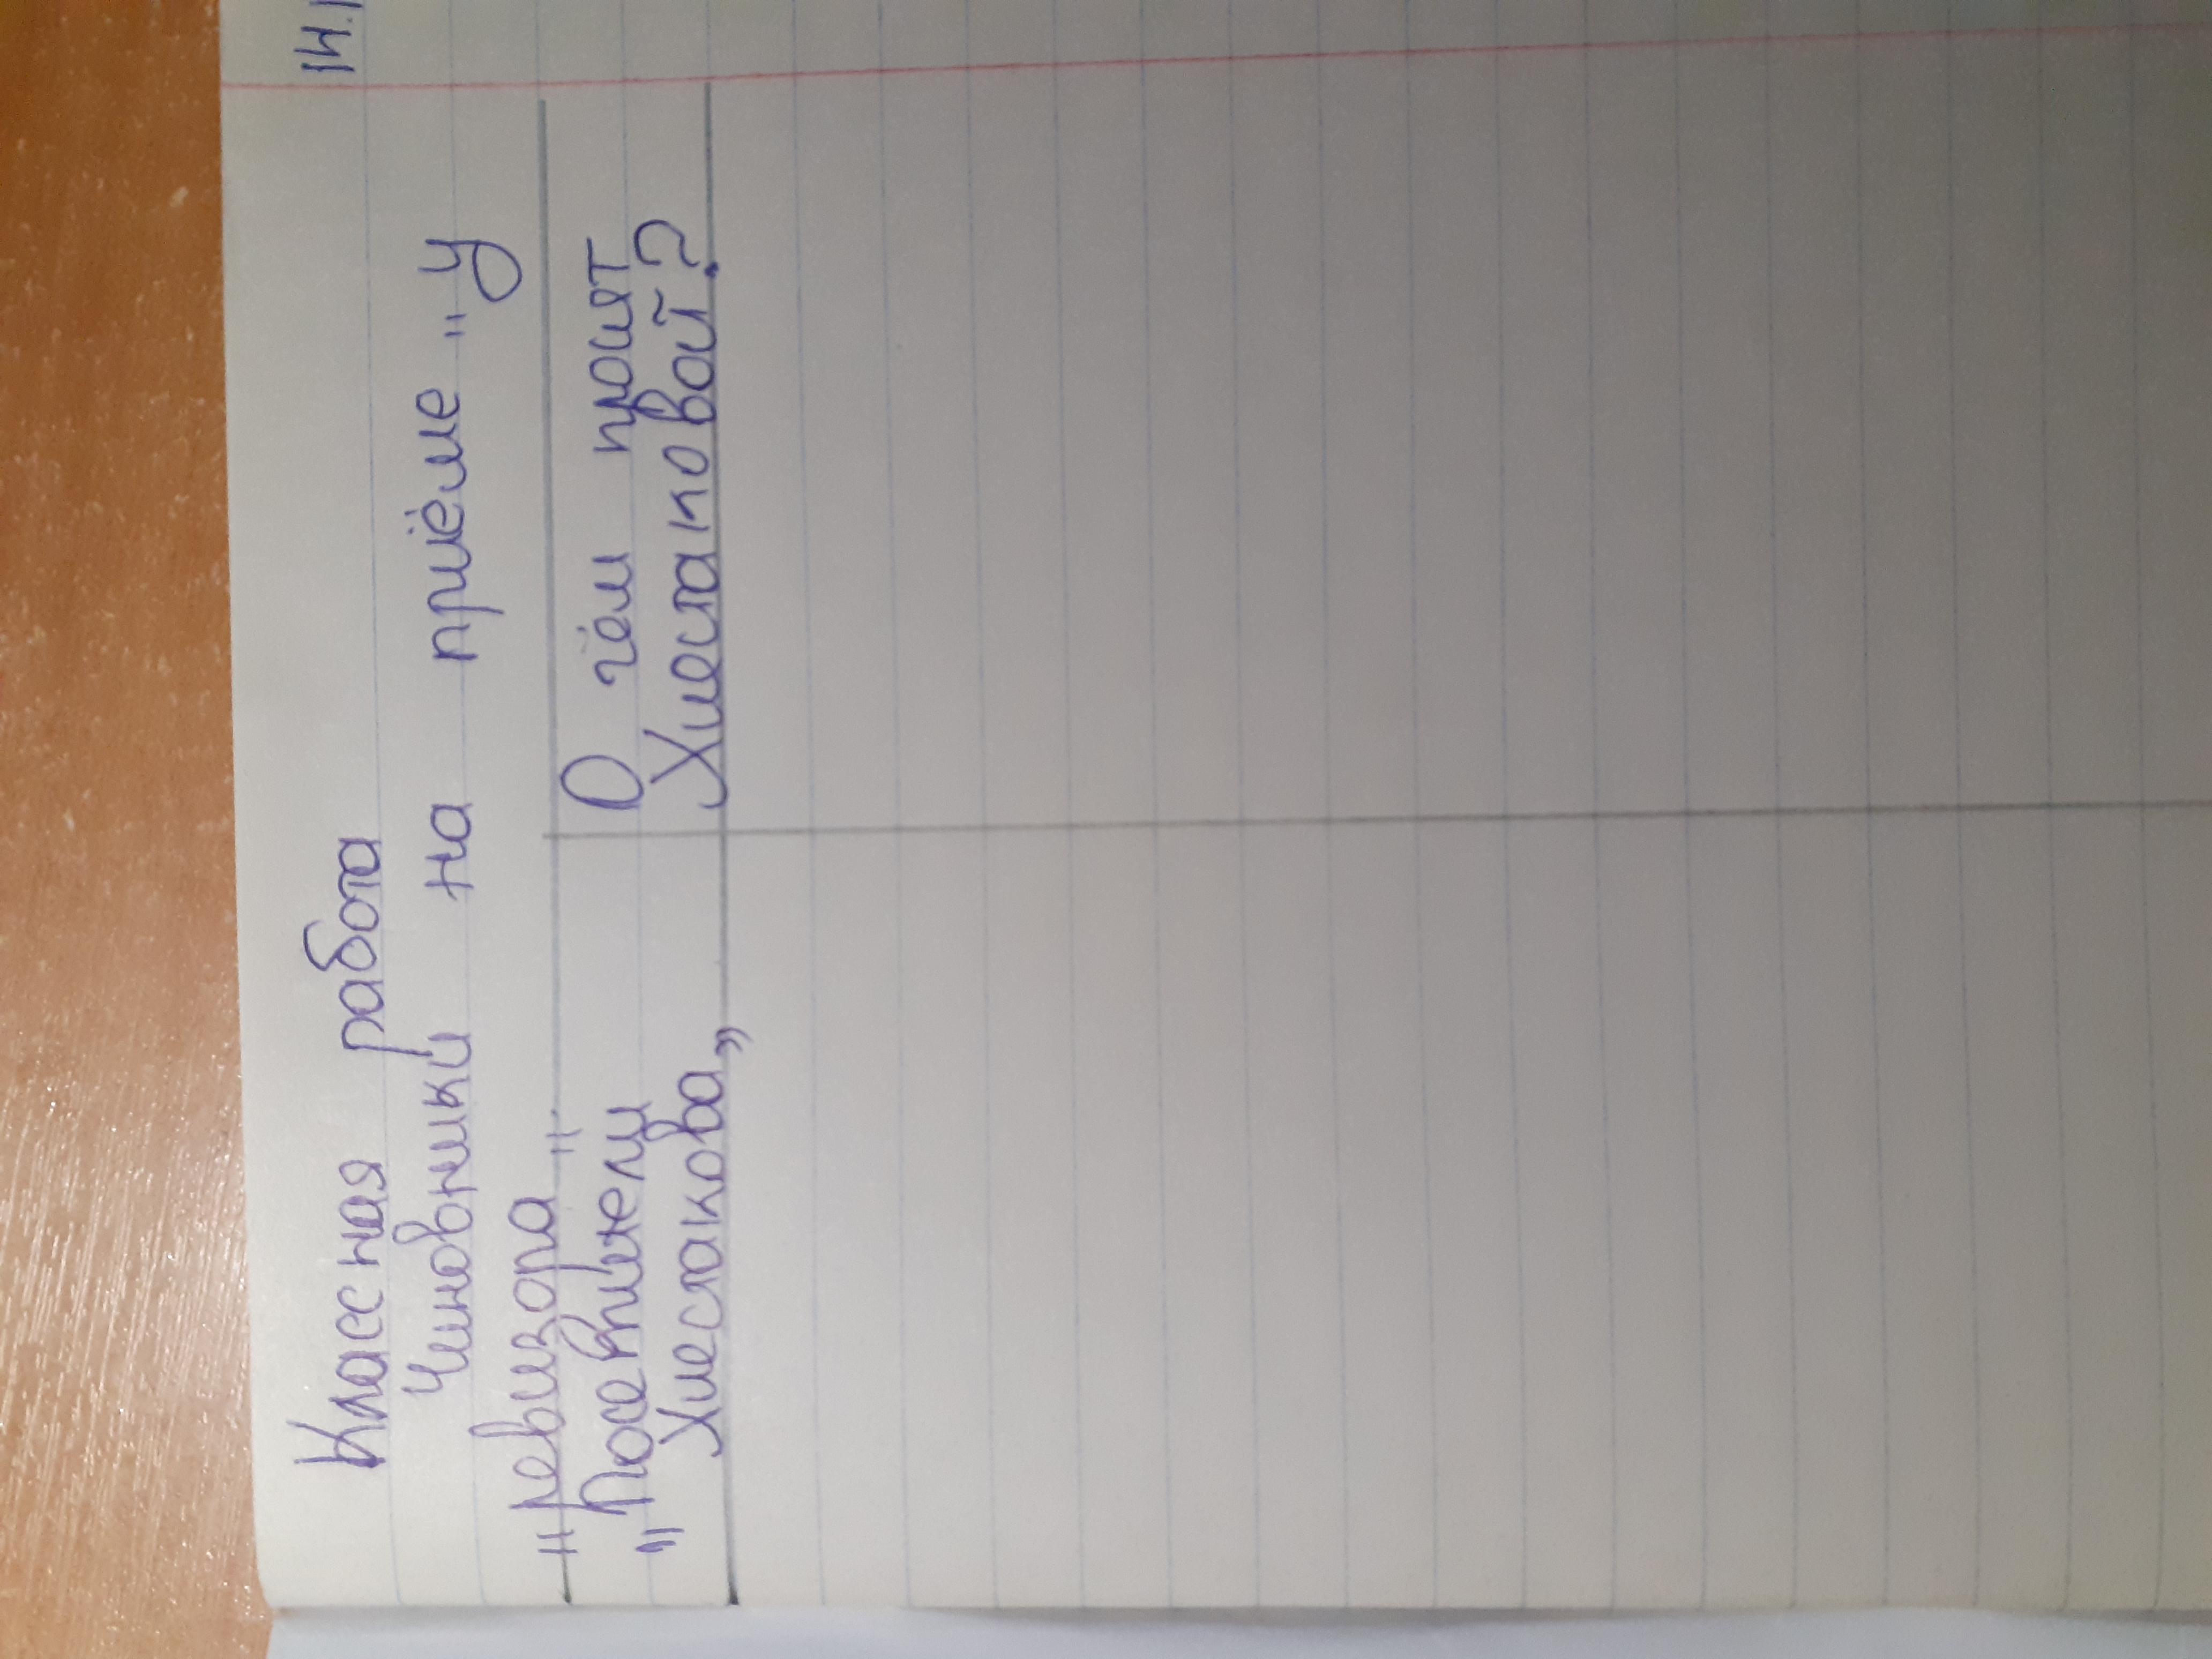 14.1
Классная работа
Чиновники на приёме "у
"ревизора"
"Посетители
Хлестакова"
О чём просят
Хлестаковой?